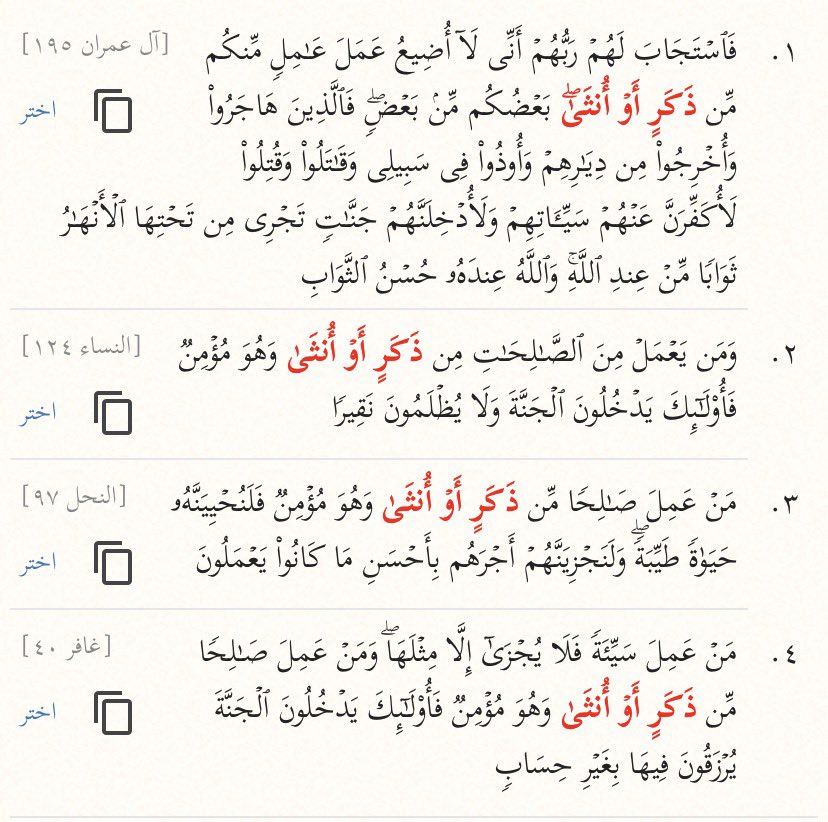 ١. فَٱسۡتَجَابَ لَهُمۡ رَبُّهُمۡ أَنِّي لَآ أُضِيعُ عَمَلَ عَٰمِلٖ مِّنكُم [آل عمران ١٩٥]
مِّن ذَكَرٍ أَوۡ أُنثَىٰۖ بَعۡضُكُم مِّنۢ بَعۡضٖۖ فَٱلَّذِينَ هَاجَرُواْ اختر
وَأُخۡرِجُواْ مِن دِيَٰرِهِمۡ وَأُوذُواْ فِي سَبِيلِي وَقَٰتَلُواْ وَقُتِلُواْ
لَأُكَفِّرَنَّ عَنۡهُمۡ سَيِّـَٔاتِهِمۡ وَلَأُدۡخِلَنَّهُمۡ جَنَّٰتٖ تَجۡرِي مِن تَحۡتِهَا ٱلۡأَنۡهَٰرُ
ثَوَابٗا مِّنۡ عِندِ ٱللَّهِۚ وَٱللَّهُ عِندَهُۥ حُسۡنُ ٱلثَّوَابِ
٢. وَمَن يَعۡمَلۡ مِنَ ٱلصَّٰلِحَٰتِ مِن ذَكَرٍ أَوۡ أُنثَىٰ وَهُوَ مُؤۡمِنٞ [النساء ١٢٤]
فَأُوْلَٰٓئِكَ يَدۡخُلُونَ ٱلۡجَنَّةَ وَلَا يُظۡلَمُونَ نَقِيرٗا اختر
٣. مَنۡ عَمِلَ صَٰلِحٗا مِّن ذَكَرٍ أَوۡ أُنثَىٰ وَهُوَ مُؤۡمِنٞ فَلَنُحۡيِيَنَّهُۥ [النحل ٩٧]
حَيَوٰةٗ طَيِّبَةٗۖ وَلَنَجۡزِيَنَّهُمۡ أَجۡرَهُم بِأَحۡسَنِ مَا كَانُواْ يَعۡمَلُونَ اختر
٤. مَنۡ عَمِلَ سَيِّئَةٗ فَلَا يُجۡزَىٰٓ إِلَّا مِثۡلَهَاۖ وَمَنۡ عَمِلَ صَٰلِحٗا [غافر ٤٠]
مِّن ذَكَرٍ أَوۡ أُنثَىٰ وَهُوَ مُؤۡمِنٞ فَأُوْلَٰٓئِكَ يَدۡخُلُونَ ٱلۡجَنَّةَ اختر
يُرۡزَقُونَ فِيهَا بِغَيۡرِ حِسَابٖ